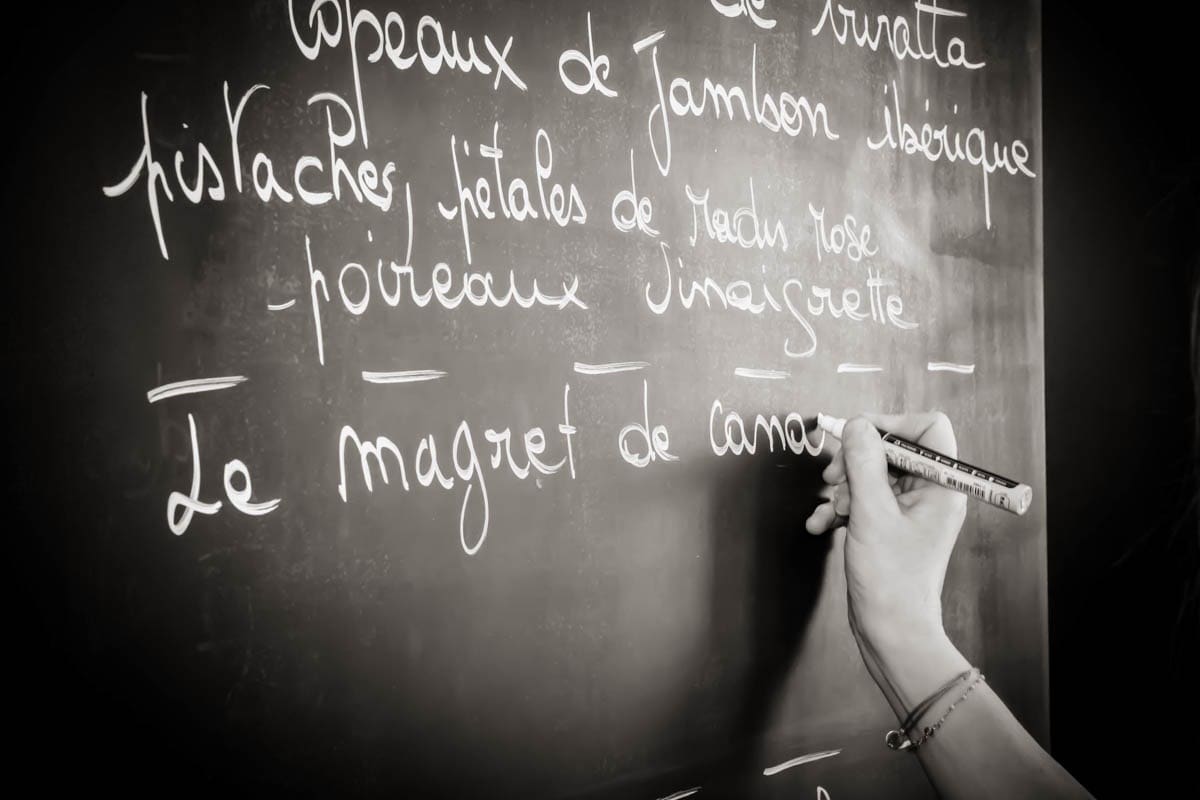 de buratta
Copeaux de Jambon ibérique
pistaches, pétales de radis rose
- poireaux Vinaigrette
Le magret de cana